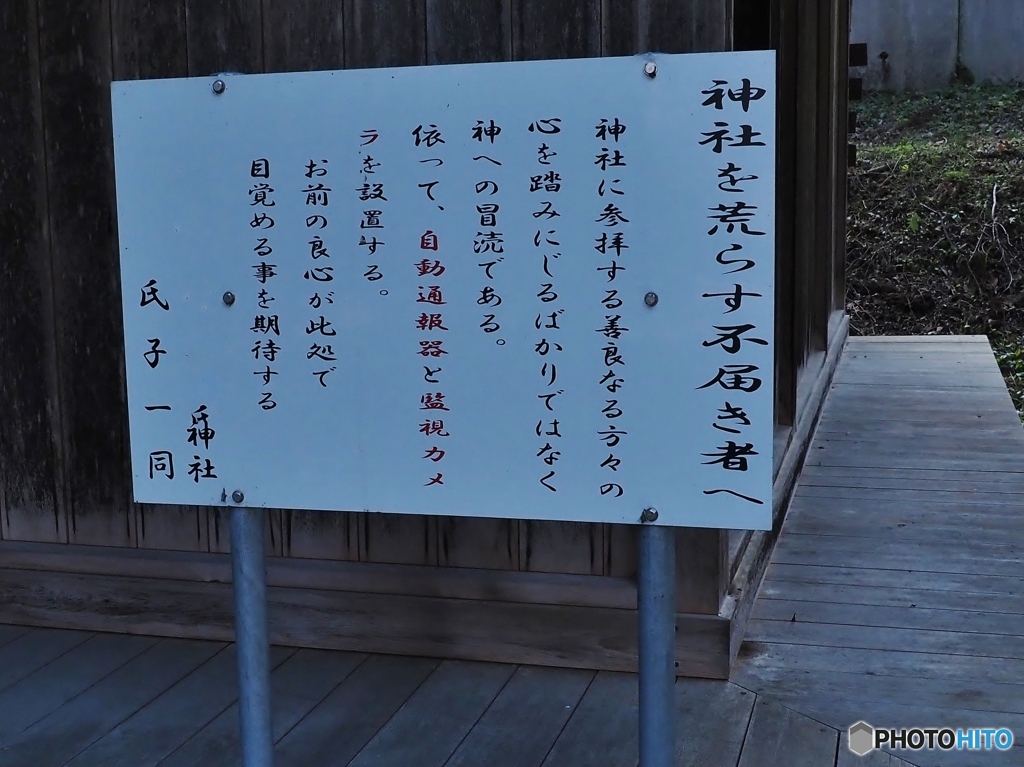 神社を荒らす不届き者へ
神社に参拝する善良なる方々の
心を踏みにじるばかりではなく
神への冒涜である。
依って、自動通報器と監視カメ
ラを設置する。
お前の良心が此処で
目覚める事を期待する
神社
氏子一同
PHOTOHITO